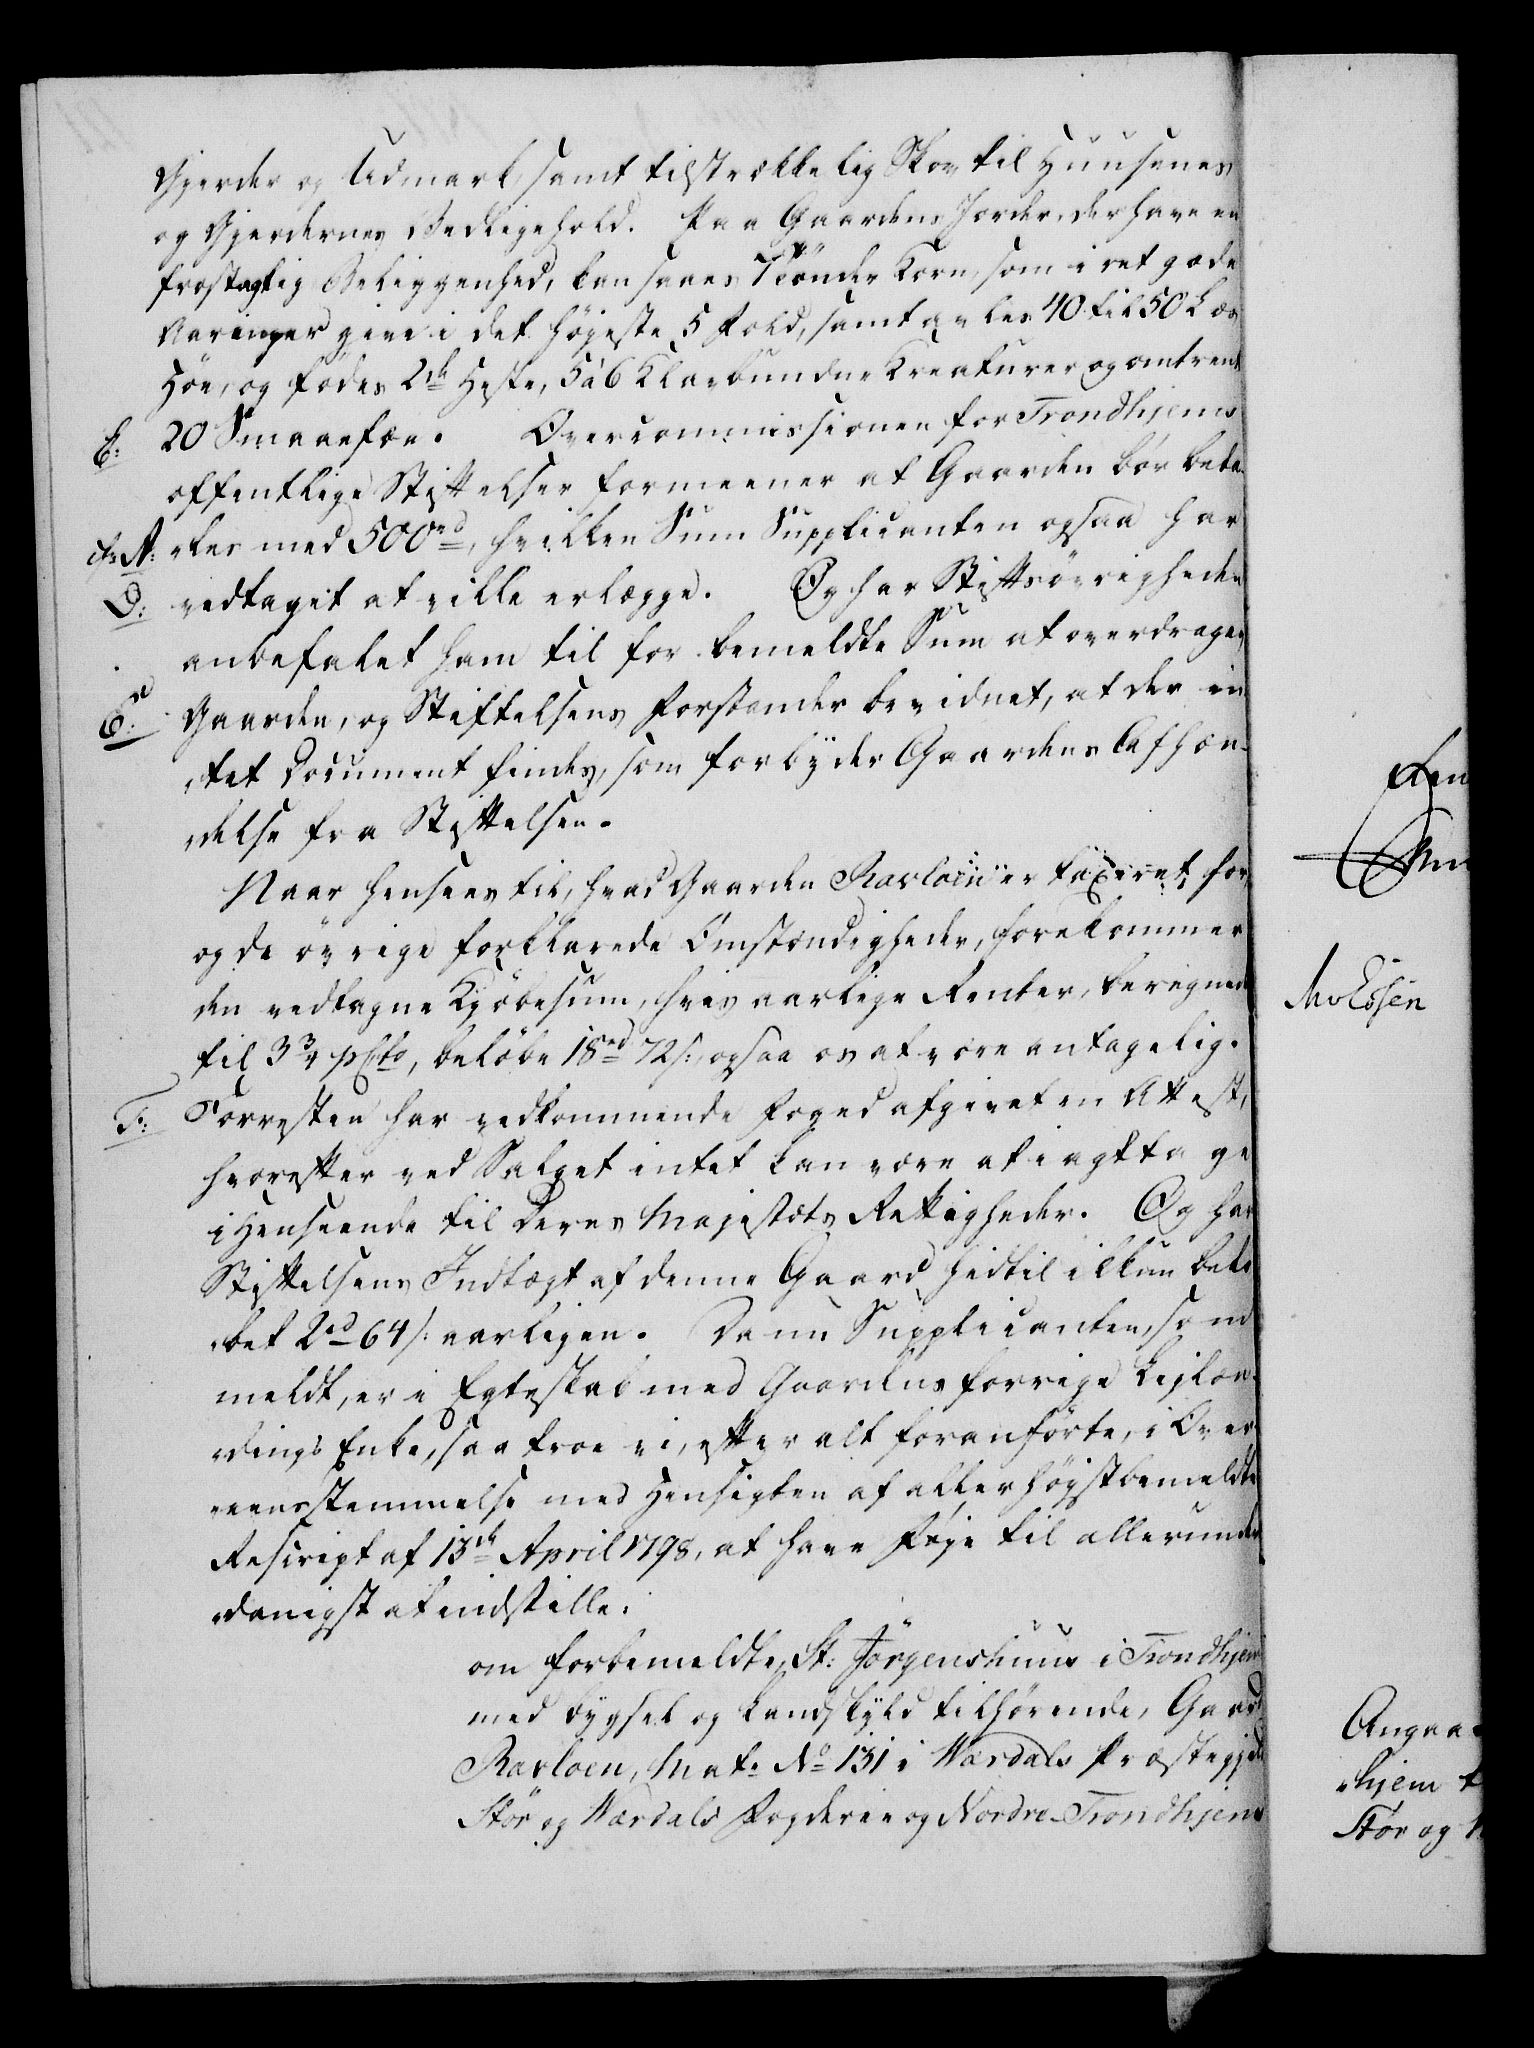 Gjerder og Udmark, samt tilstrækkelig Skov til Huusenes
og Gjerdernes Vedligehold. Paa Gaardens Jorder, der have en
frostagtig Beliggenhed, kan saaes Tönder Korn, som i ret gode
Aaringer give i det höjeste 5 Fold, samt avles 40 til 50 Læs
Höe, og födes 2de Heste, 5 à 6 Klavbundne Kreaturer og omtrent
E: 20 Smaaefæe. Overcommissionen for Trondhjems
offentlige Stiftelser formeener at Gaarden bör beta-
cfr A: „les med 500rd, hvilken Sum Supplicanten ogsaa har
D: vedtaget at ville erlægge. Og har Stiftsövrigheden
anbefalet ham til for bemeldte Sum at overdrages
E: Gaarden, og Stiftelsens Forstander bevidnet, at der in
„tet Document findes, som forbyder Gaardens Afhæn-
„delse fra Stiftelsen.
Naar hensees til, hvad Gaarden Ravloën er taxeret for,
og de övrige forklarede Omstændigheder, forekommer
den vedtagne Kjöbesum, hvis aarlige Renter, beregnede
til 3¾ pCto, belöbe 18rd 72s:, ogsaa os at være antagelig.
F: Forresten har vedkommende Foged afgivet en Attest,
hvorefter ved Salget intet kan være at iagttage
i Henseende til Deres Majestæts Rettigheder. Og har
Stiftelsens Indtægt af denne Gaard hidtil ikkun belö
„bet 2rd 64s: aarligen. Da nu Supplicanten, som
meldt, er i Egteskab med Gaardens forrige Lejlæn-
„dings Enke, saa troe vi, efter alt foranförte, i Over-
„eensstemmelse med Hensigten af allerhöjstbemeldte
Rescript af 13de April 1798, at have Föje til allerunder
„danigst at indstille:
om forbemeldte, St: Jörgenshuus i Trondhjem
med Bygsel og Landskyld tilhörende, Gaard
Ravloen, Mat: No 131 i Værdals Præstegjeld
Stör og Værdals Fogderie og Nordre-Trondhjems
MvEssen
Angaa
„hjem
Stör og